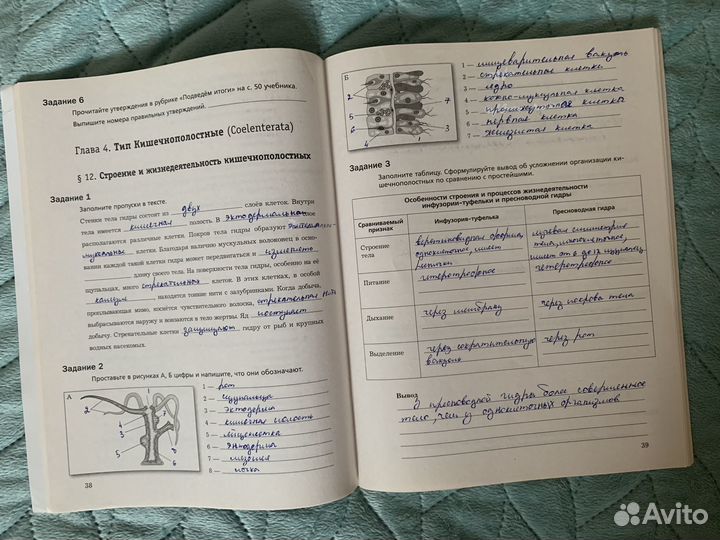 Задание 6
Прочитайте утверждения в рубрике «Подведём итоги» на с. 50 учебника.
Выпишите номера правильных утверждений.
Глава 4. Тип Кишечнополостные (Coelenterata)
§ 12. Строение и жизнедеятельность кишечнополостных
Задание 1
Заполните пропуски в тексте.
Стенки тела гидры состоят из двух слоёв клеток. Внутри
тела имеется кишечная полость. В эктодермальном слое
располагаются различные клетки. Покров тела гидры образуют
мускульные клетки. Благодаря наличию мускульных волоконец в осно-
вании каждой такой клетки гидра может передвигаться и изменять
длину своего тела. На поверхности тела гидры, особенно на её
щупальцах, много стрекательных клеток. В этих клетках, в особой
капсуле находятся тонкие нити с зазубринками. Когда добыча,
проплывающая мимо, коснётся чувствительного волоска, стрекательные нити
выбрасываются наружу и вонзаются в тело жертвы. Яд поступает
добычу. Стрекательные клетки защищают гидру от рыб и крупных
водных насекомых.
Задание 2
Проставьте в рисунках А, Б цифры и напишите, что они обозначают.
А
1
2
3
4
5
6
7
8
1 — рот
2 — щупальца
3 — эктодерма
4 — кишечная полость
5 —
6 — энтодерма
7 — мезоглея
8 — почка
38
Б
1
2
3
4
5
6
7
1 — пищеварительная вакуоль
2 — стрекательная клетка
3 — ядро
4 — кожно-мускульная клетка
5 — промежуточная клетка
6 — нервная клетка
7 — железистая клетка
Задание 3
Заполните таблицу. Сформулируйте вывод об усложнении организации ки-
шечнополостных по сравнению с простейшими.
Особенности строения и процессов жизнедеятельности
инфузории-туфельки и пресноводной гидры
Сравниваемый признак
Инфузория-туфелька
Пресноводная гидра
Строение тела
веретеновидная форма,
одноклеточное, имеет
реснички
лучевая симметрия
тела, многоклеточное,
имеет от 6 до 12 щупалец
Питание
гетеротрофное
гетеротрофное
Дыхание
через мембрану
через покровы тела
Выделение
через сократительную
вакуоль
через рот
Вывод
У пресноводной гидры более совершенное
тело, чем у одноклеточных организмов
39
Avito